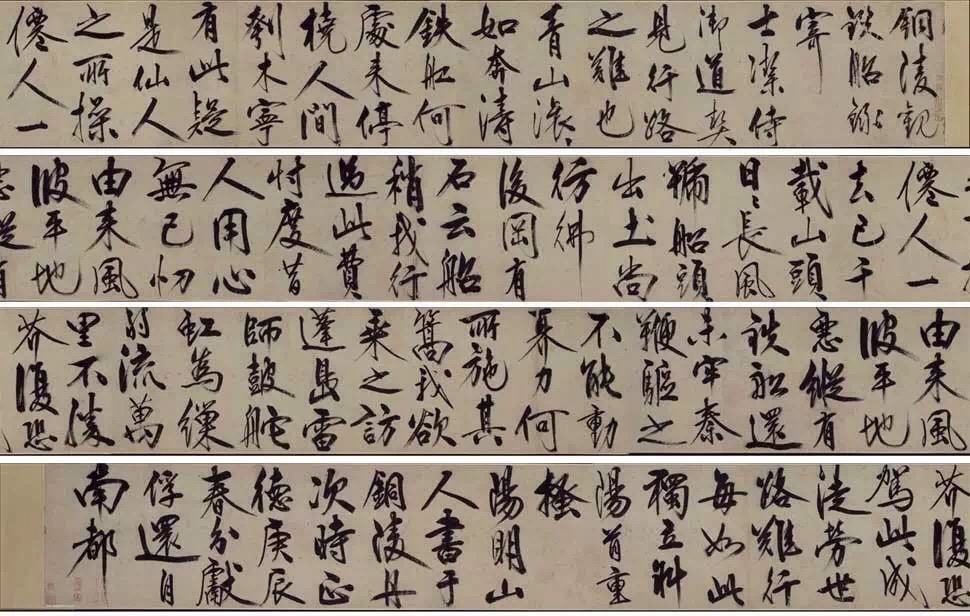 銅陵觀
鉄船録
寄
士潔侍
御道契
見行路
之難也
青山滾滾
如奔濤
鉄船何
處来停
橈人間
刳木寧
有此疑
是仙人
之所操
僊人一
僊人一
去已千
載山頭
日日長風
號船頭
出土尚
彷彿
後岡有
石云船
稍我行
過此費
忖度昔
人用心
無已忉
由来風
波平地
由来風
波平地
惡縱有
鉄船還
未牢秦
鞭驅之
不能動
奡力何
所施其
篙我欲
乘之訪
蓬島雷
師鼓舵
虹為繅
弱流萬
里不勝
芥復恐
芥復恐
駕此成
徒勞世
路難行
每如此
獨立斜
陽首重
搔
陽明山
人書于
銅陵舟
次時正
德庚辰
春分獻
俘還自
南都